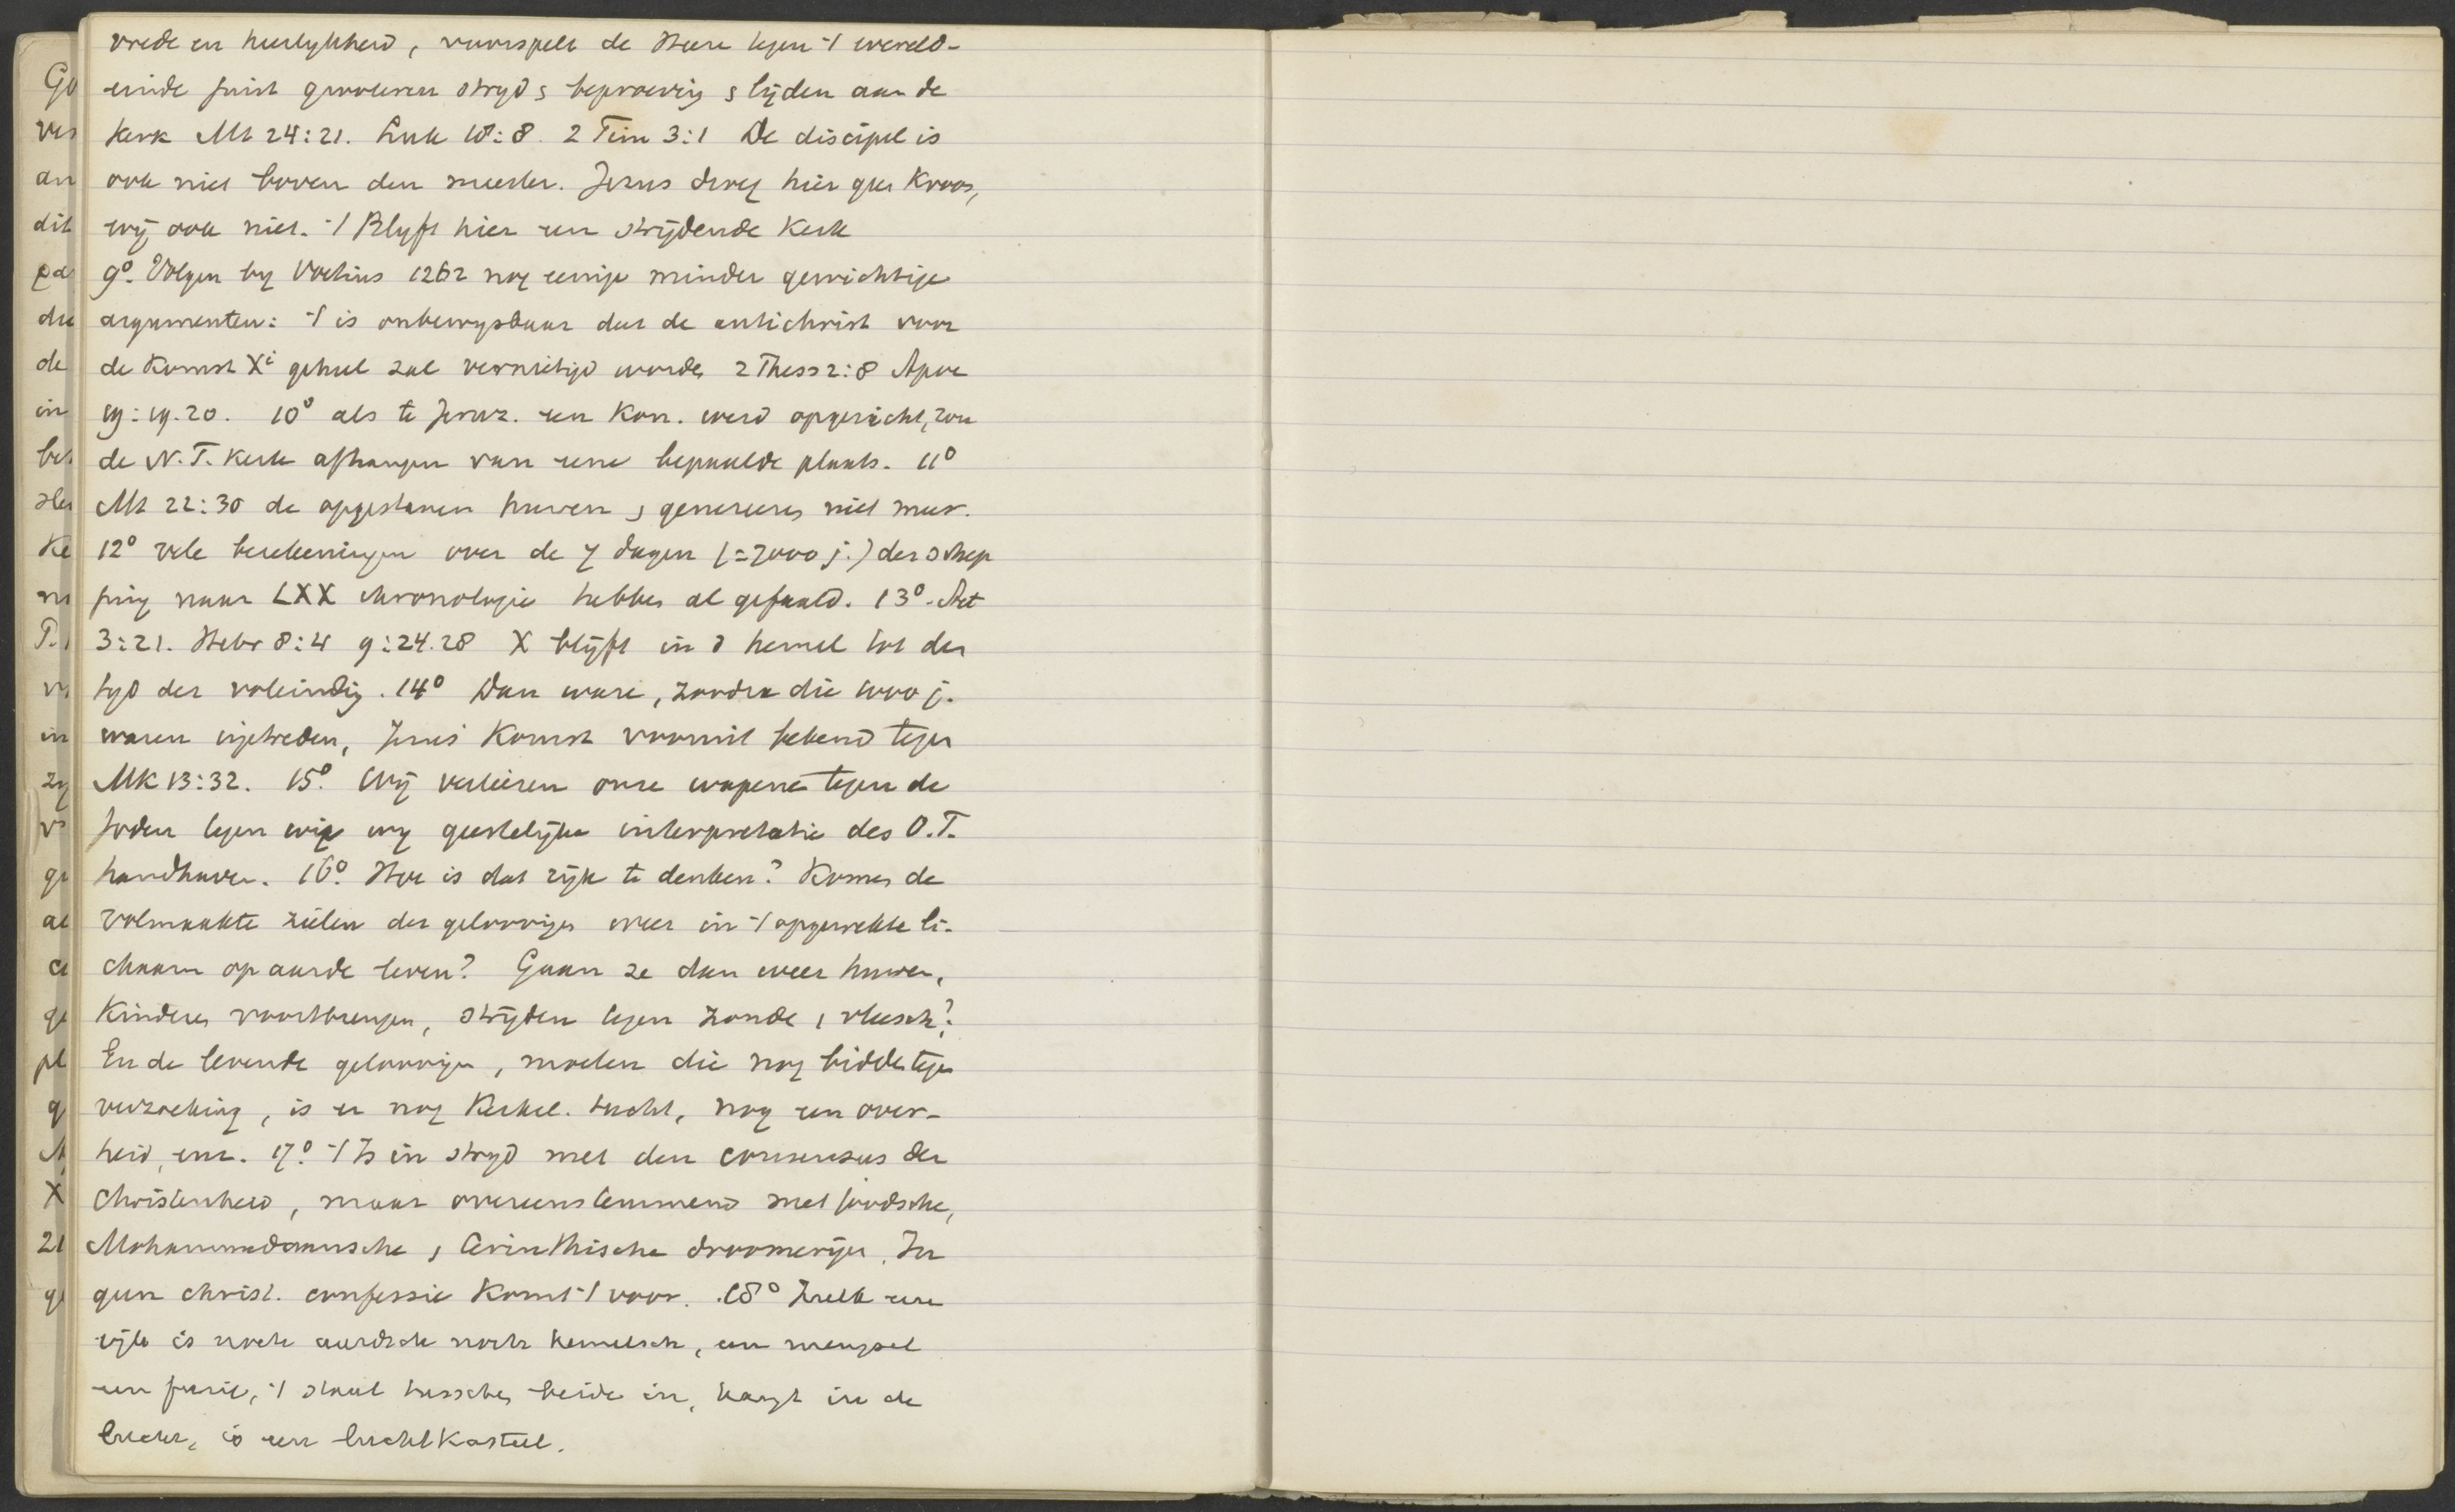 vrede en heerlykheid, voorspelt de Heere tegen 't wereld-
einde juist grooteren stryd & beproeving & lijden aan de
kerk Mt 24:21. Luk 18:8. 2 Tim 3:1 De discipel is
ook niet boven den meester. Jezus droeg hier geen Kroon,
wij ook niet. 't Blyft hier een strijdende Kerk
9°. Volgen by Voetius 1262 nog eenige minder gewichtige
argumenten: 't is onbewysbaar dat de antichrist voor
de Komst Xi geheel zal vernietigd worden 2 Thess 2:8 Apoc
19:19.20. 10° als te Jeruz. een Kon. werd opgericht, zou
de N.T. Kerk afhangen van eene bepaalde plaats. 11°
Mt 22:30 de opgestanen huwen & genereeren niet meer.
12° vele berekeningen over de 7 dagen (=7000 j.) der schep
ping naar LXX chronologie hebben al gefaald. 13°. Act
3:21. Hebr 8:4 9:24.28 X blijft in d hemel tot den
tyd der voleindig. 14° Dan ware, zoodra die 1000 j.
waren ingetreden, Jezus' Komst vooruit bekend tegen
Mk 13:32. 15°. Wij verliezen onze wapens tegen de
Joden tegen wie wy geestelijke interpretatie des O.T.
handhaven. 16°. Hoe is dat rijk te denken? Komen de
volmaakte zielen der geloovigen weer in 't opgewekte li-
chaam op aarde leven? Gaan ze dan weer huwen,
Kinderen voortbrengen, strijden tegen zonde & vleesch?
En de levende geloovigen, moeten die nog bidden tegen
verzoeking, is er nog Kerkel. tucht, nog een over-
heid, enz. 17°. 't Is in stryd met den consensus der
Christenheid, maar overeenstemmend met joodsche,
Mohammedaansche & Cerinthische droomerijen. In
geen christ. confessie Komt 't voor. 18° Zulk een
rijk is noch aardsch noch hemelsch, een mengsel
een fusie, 't staat tusschen beide in, hangt in de
lucht, is een luchtkasteel.